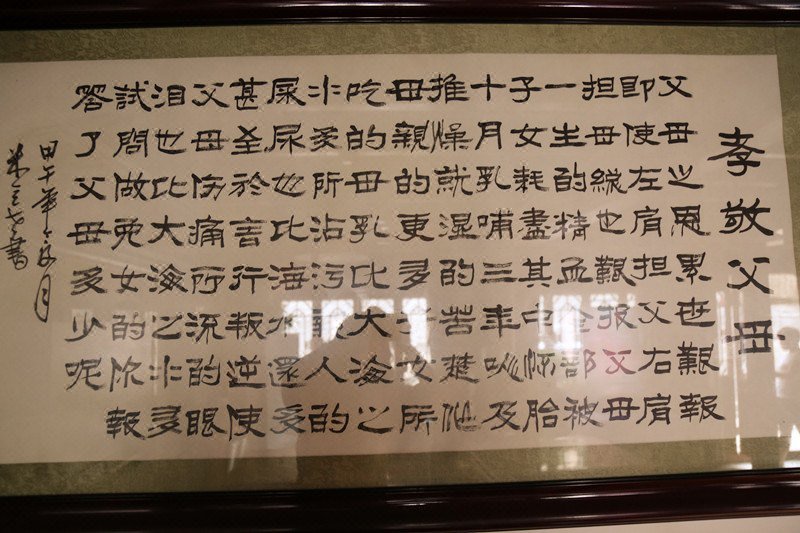 孝敬父母
父母之恩累世艱報
即使左肩担父右肩
担母縱也艱报父母
一生的精血全部被
子女耗盡其中怀胎
十月乳哺三年以及
推燥就湿的苦楚他
母親的更多子女所
吃的母乳比大海之
水多所沾污親人的
屎尿也比海水還多
甚至於言行叛逆使
父母伤痛所流的眼
泪也比大海之水多
試問做兒女的你報
答了父母多少呢
甲午年六月
書